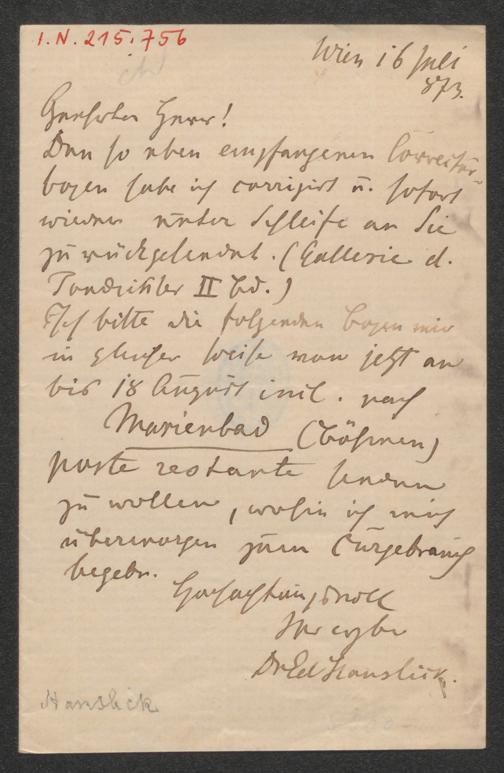 I.N. 215.756
Wien 16 Juli
873.
Geehrter Herr!
Den so eben empfangenen Correctur-
bogen habe ich corrigirt u. sofort
wieder unter Schleife an Sie
zurückgesendet. (Gallerie d.
Tondichter II Bd.)
Ich bitte die folgenden Bogen mir
in gleicher Weise von jetzt an
bis 18 August incl. nach
Marienbad (Böhmen)
poste restante senden
zu wollen, wohin ich mich
übermorgen zum Curgebrauch
begebe.
Hochachtungsvoll
Ihr ergbr
Dr Ed Hanslick.
Hanslick